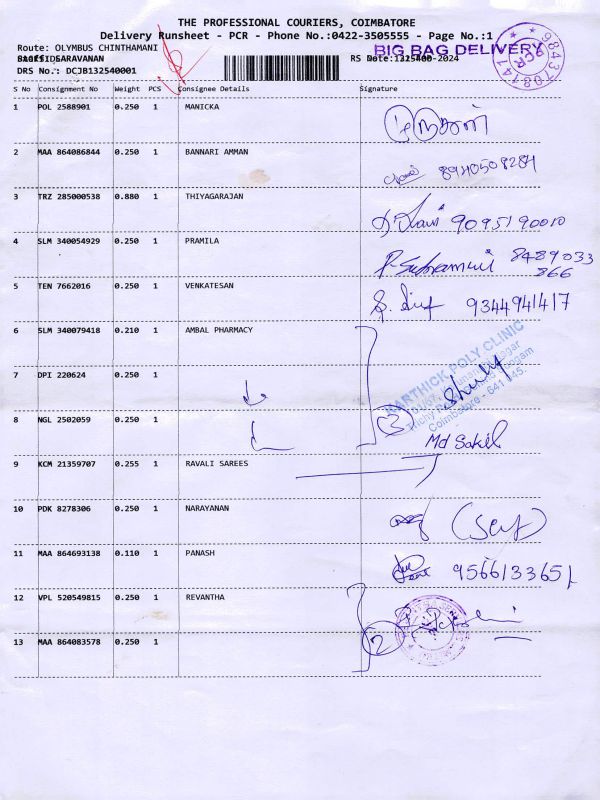 THE PROFESSIONAL COURIERS, COIMBATORE
Delivery Runsheet - PCR - Phone No.:0422-3505555 - Page No.:1
Route: OLYMBUS CHINTHAMANI
BIG BAG DELIVERY
SARAVANAN
DRS No.: DCJB132540001
PCR
9843708141
S No Consignment No Weight PCS Consignee Details Signature
1 POL 2588901 0.250 1 MANICKA
2 MAA 864086844 0.250 1 BANNARI AMMAN 8940509284
3 TRZ 285000538 0.880 1 THIYAGARAJAN 9095190010
4 SLM 340054929 0.250 1 PRAMILA 8489033
866
5 TEN 7662016 0.250 1 VENKATESAN 9344941417
6 SLM 340079418 0.210 1 AMBAL PHARMACY
KARTHICK POLY CLINIC
7 DPI 220624 0.250 1
Coimbatore - 641 045.
8 NGL 2502059 0.250 1 3
Md Sakil
9 KCM 21359707 0.255 1 RAVALI SAREES
10 PDK 8278306 0.250 1 NARAYANAN (Self)
11 MAA 864693138 0.110 1 PANASH 9566133651
12 VPL 520549815 0.250 1 REVANTHA
2
13 MAA 864083578 0.250 1